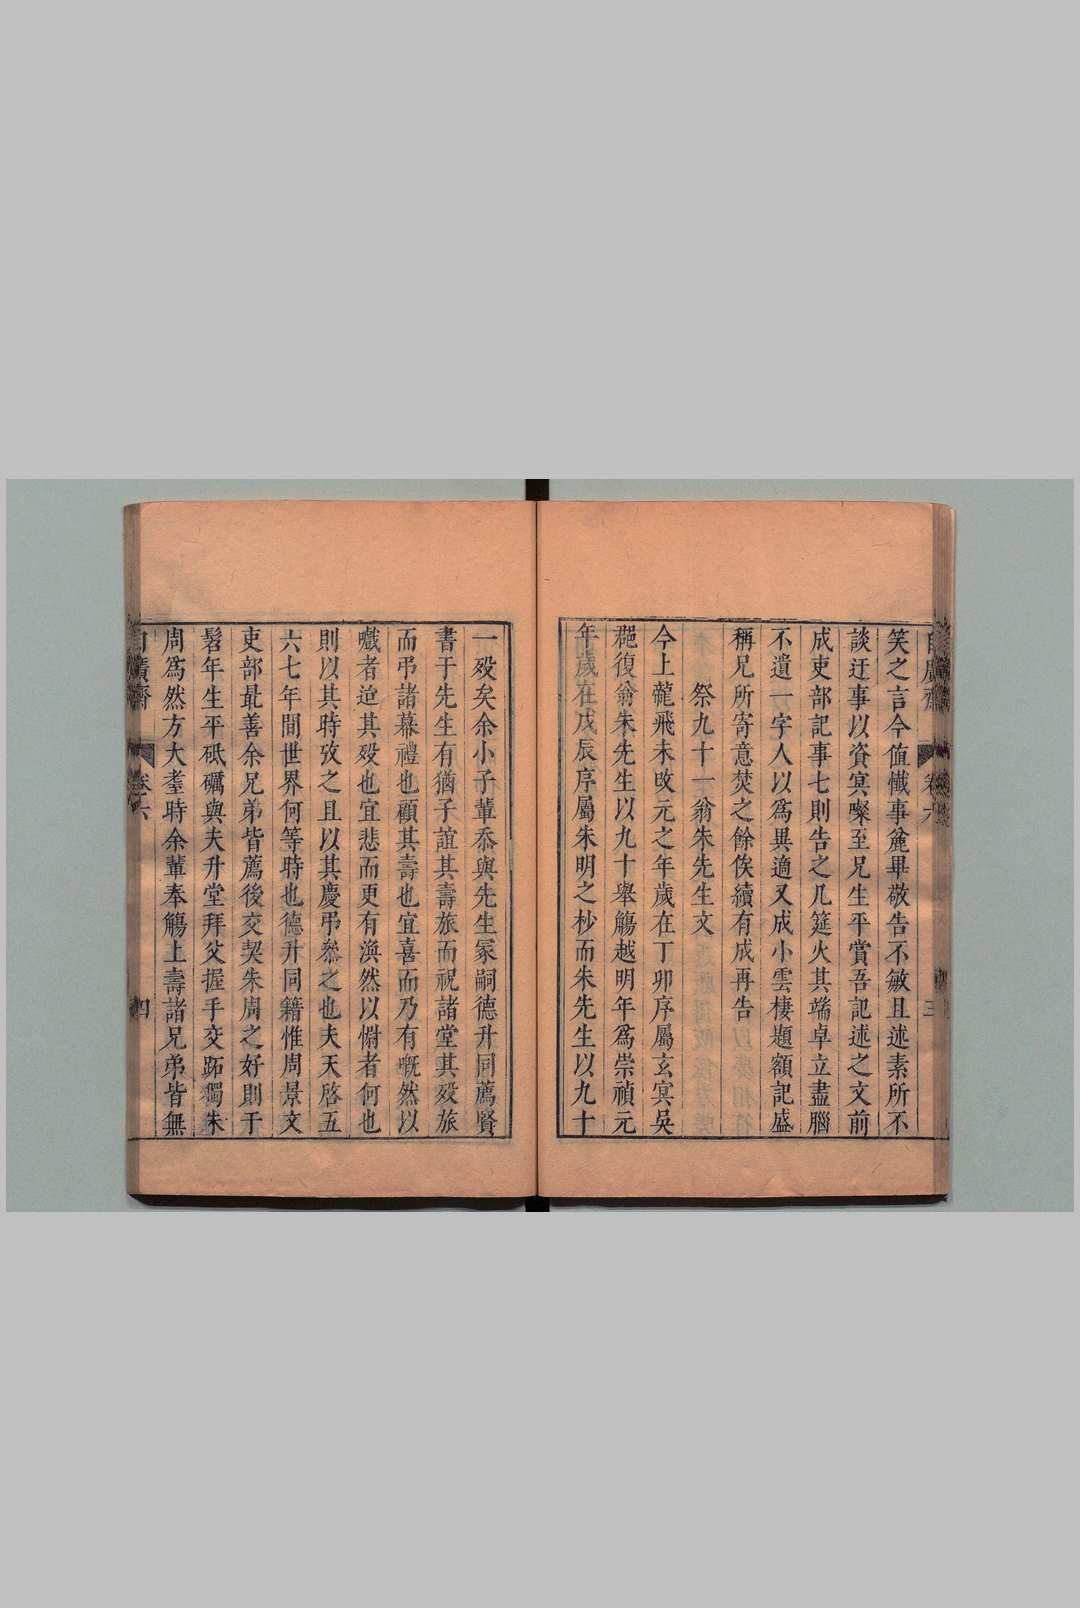 自廣齋
卷六
三
笑之言今值懺事麄畢敬告不敏且述素所不
談迂事以資冥噱至兄生平賞吾記述之文前
成吏部記事七則告之几筵火其端卓立盡腦
不遺一字人以為異適又成小雲棲題額記盛
稱兄所寄意焚之餘俟續有成再告
祭九十一翁朱先生文
今上龍飛未改元之年歲在丁卯序屬玄冥吳
郡復翁朱先生以九十舉觴越明年為崇禎元
年歲在戊辰序屬朱明之杪而朱先生以九十
一歿矣余小子輩忝與先生冢嗣德升同薦賢
書于先生有猶子誼其壽旅而祝諸堂其歿旅
而弔諸幕禮也顧其壽也宜喜而乃有嘅然以
嚱者迨其歿也宜悲而更有渙然以慰者何也
則以其時攷之且以其慶弔叅之也夫天啓五
六七年間世界何等時也德升同籍惟周景文
吏部最善余兄弟皆薦後交契朱周之好則于
髫年生平砥礪與夫升堂拜父握手交跖獨朱
周為然方大耋時余輩奉觴上壽諸兄弟皆無
自廣齋
卷六
四